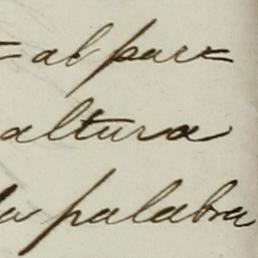 = al pare=
altura
la palabra